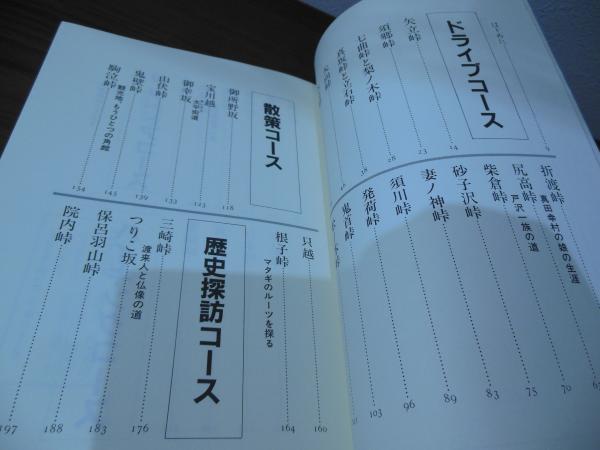 はじめに 9
ドライブコース
矢立峠 14
須郷峠 23
七曲峠と梨ノ木峠 28
真坂峠と立石峠 38
46
折渡峠
真田幸村の娘の生涯
尻高峠 70
戸沢一族の道
柴倉峠 75
砂子沢峠 83
妻ノ神峠 89
須川峠 96
発荷峠 103
鬼首峠
散策コース
御所野坂 118
宝引越 123
御幸坂 133
由伏峠 139
鬼壁峠 145
駒泣峠 154
観光地、もうひとつの角館
只越 160
根子峠 164
マタギのルーツを探る
歴史探訪コース
三崎峠 176
つりこ坂 183
渡来人と仏像の道
保呂羽山峠 188
院内峠 197